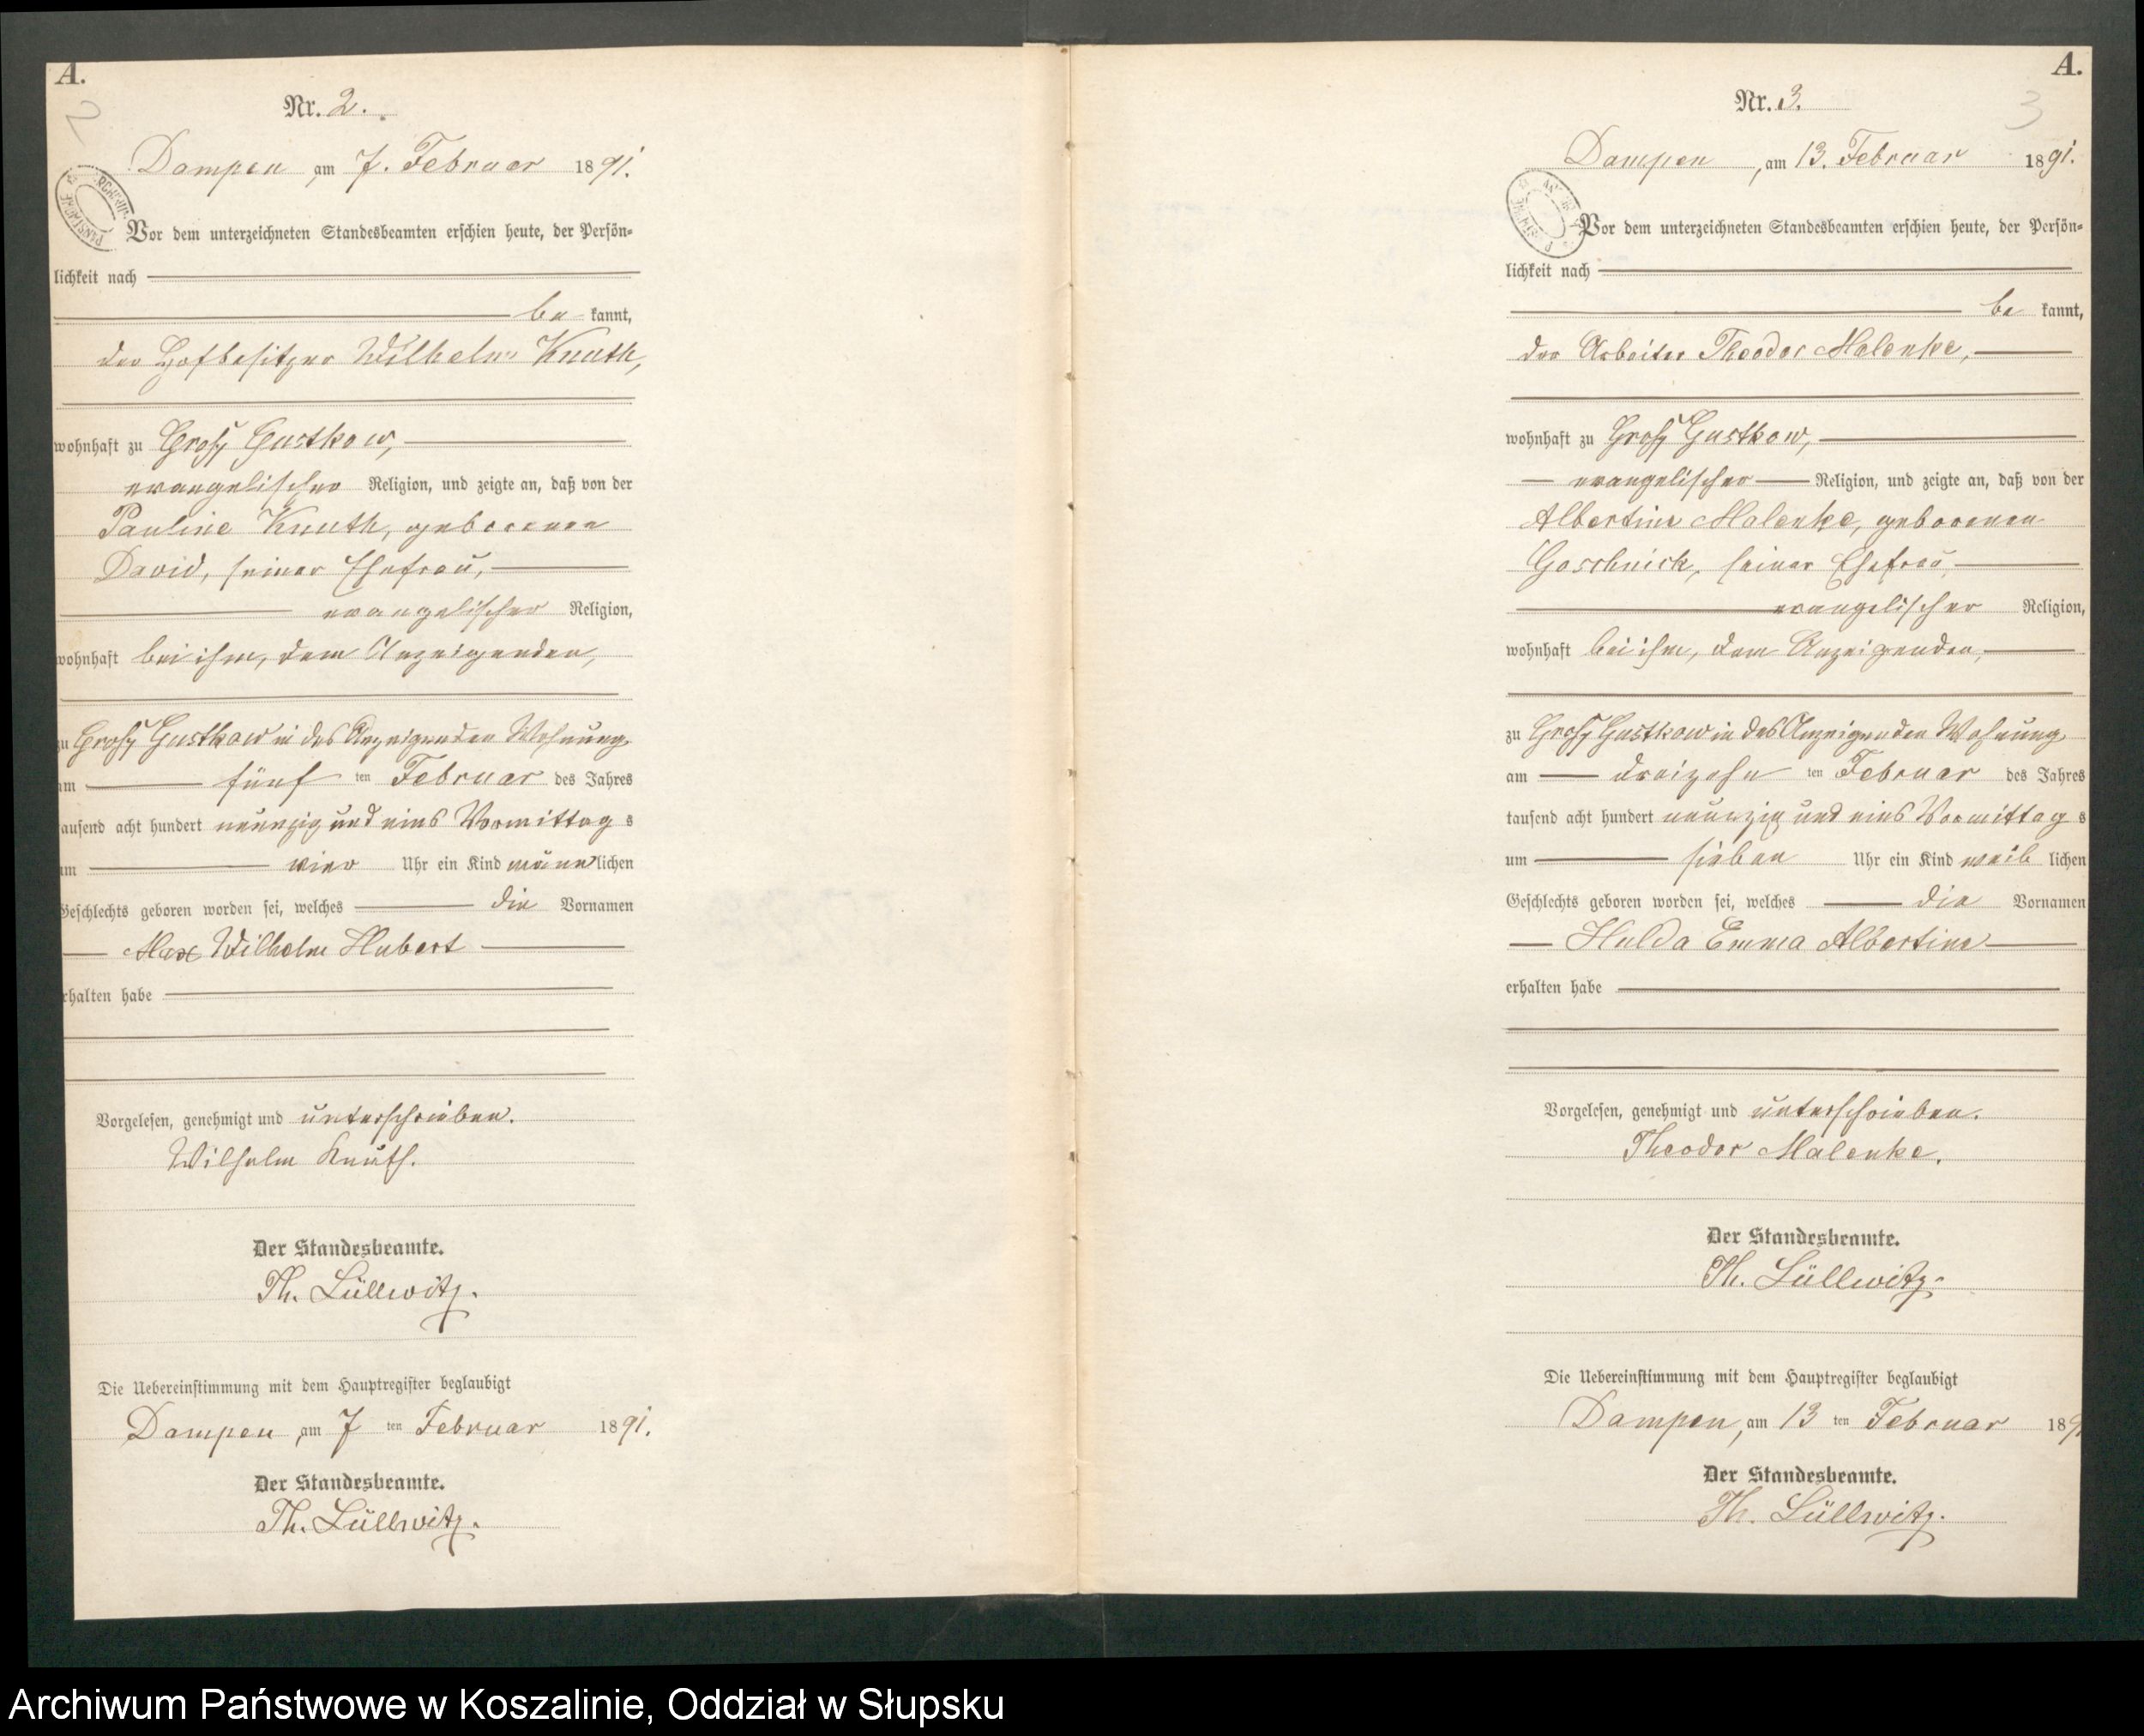 A.
2
Nr. 2.
Dampen, am 7. Februar 1891.
Vor dem unterzeichneten Standesbeamten erschien heute, der Persön-
lichkeit nach
be kannt,
der Hofbesitzer Wilhelm Knuth,
wohnhaft zu Groß Gustkow,
evangelischer Religion, und zeigte an, daß von der
Pauline Knuth, geborenen
David, seiner Ehefrau,
evangelischer Religion,
wohnhaft bei ihm, dem Anzeigenden,
zu Groß Gustkow in des Anzeigenden Wohnung
am fünf ten Februar des Jahres
tausend acht hundert neunzig und eins Vormittag s
um vier Uhr ein Kind männ lichen
Geschlechts geboren worden sei, welches die Vornamen
Max Wilhelm Hubert
erhalten habe
Vorgelesen, genehmigt und unterschrieben.
Wilhelm Knuth.
Der Standesbeamte.
Th. Lüllwitz.
Die Uebereinstimmung mit dem Hauptregister beglaubigt
Dampen, am 7 ten Februar 1891.
Der Standesbeamte.
Th. Lüllwitz.
A.
3
Nr. 3.
Dampen, am 13. Februar 1891.
Vor dem unterzeichneten Standesbeamten erschien heute, der Persön-
lichkeit nach
be kannt,
der Arbeiter Theodor Malenke,
wohnhaft zu Groß Gustkow,
evangelischer Religion, und zeigte an, daß von der
Albertine Malenke, geborenen
Goschnick, seiner Ehefrau,
evangelischer Religion,
wohnhaft bei ihm, dem Anzeigenden,
zu Groß Gustkow in des Anzeigenden Wohnung
am dreizehn ten Februar des Jahres
tausend acht hundert neunzig und eins Vormittag s
um sieben Uhr ein Kind weib lichen
Geschlechts geboren worden sei, welches die Vornamen
Hulda Emma Albertine
erhalten habe
Vorgelesen, genehmigt und unterschrieben.
Theodor Malenke.
Der Standesbeamte.
Th. Lüllwitz.
Die Uebereinstimmung mit dem Hauptregister beglaubigt
Dampen, am 13 ten Februar 189
Der Standesbeamte.
Th. Lüllwitz.
Archiwum Państwowe w Koszalinie, Oddział w Słupsku